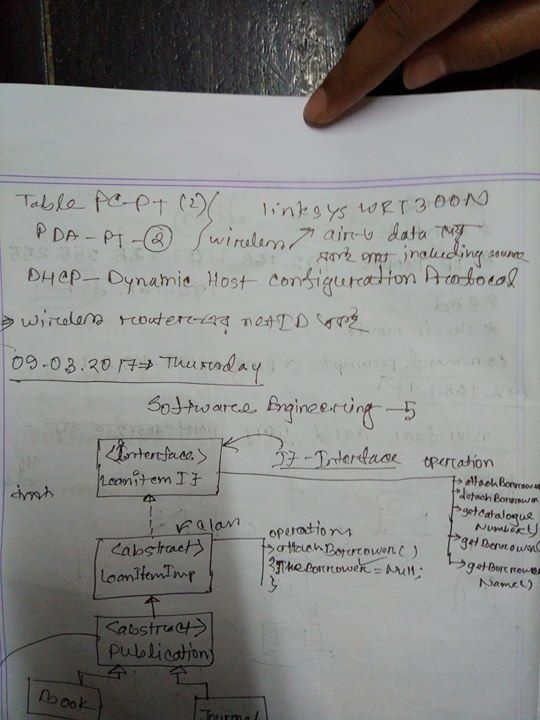 Table PC-PT (2)
linksys WRT300N
PDA-PT-2 } wireless → air-এ data
including source
DHCP - Dynamic Host Configuration Protocol
⇒ wireless router-এর netID
09.03.2017 → Thursday
Software Engineering - 5
<Interface>
LoanitemIF
IF - Interface
operation
→ attachBorrower
→ detachBorrower
→ getCatalogue
Number()
→ getBorrower
→ getBorrower
Name()
<abstract>
LoanItemImp
operations
→ attachBorrower()
{TheBorrower = Null;
}
<abstract>
Publication
Book
Journal